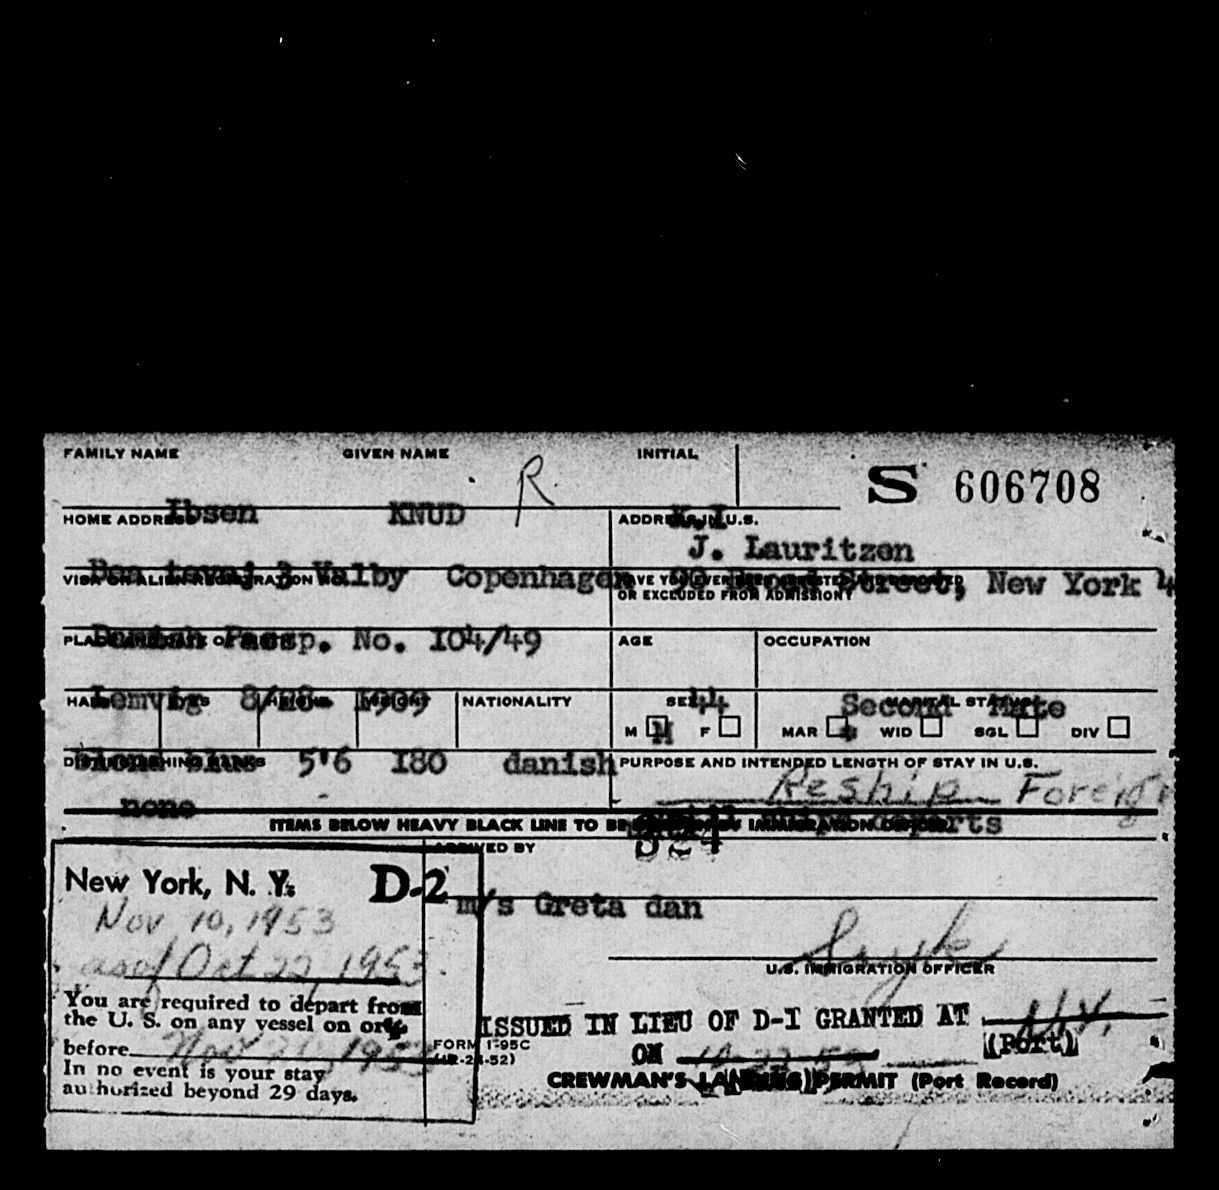 FAMILY NAME GIVEN NAME INITIAL
R
S 606708
Ibsen KNUD K.I
HOME ADDRESS ADDRESS IN U.S.
J. Lauritzen
Valby Copenhagen Street, New York 4
VISA OR ALIEN REGISTRATION No. HAVE YOU EVER BEEN
OR EXCLUDED FROM ADMISSION?
Danish Passp. No. I04/49
AGE OCCUPATION
Lemvig 8/28 1909 44 Second Mate
NATIONALITY SEX MARITAL STATUS
M F MAR WID SGL DIV
M
blue 5'6 I80 danish
DISTINGUISHING MARKS PURPOSE AND INTENDED LENGTH OF STAY IN U.S.
Reship Foreign
none
ITEMS BELOW HEAVY BLACK LINE TO BE IMMIGRATION
524
ARRIVED BY
New York, N. Y. D-2
m/s Greta dan
Nov 10, 1953
as of Oct 22, 1953
U.S. IMMIGRATION OFFICER
You are required to depart from
the U. S. on any vessel on or
before Nov 1953
In no event is your stay
authorized beyond 29 days.
ISSUED IN LIEU OF D-1 GRANTED AT N.Y.
(Port)
ON 10-22-53
FORM I-95C
CREWMAN'S LANDING PERMIT (Port Record)